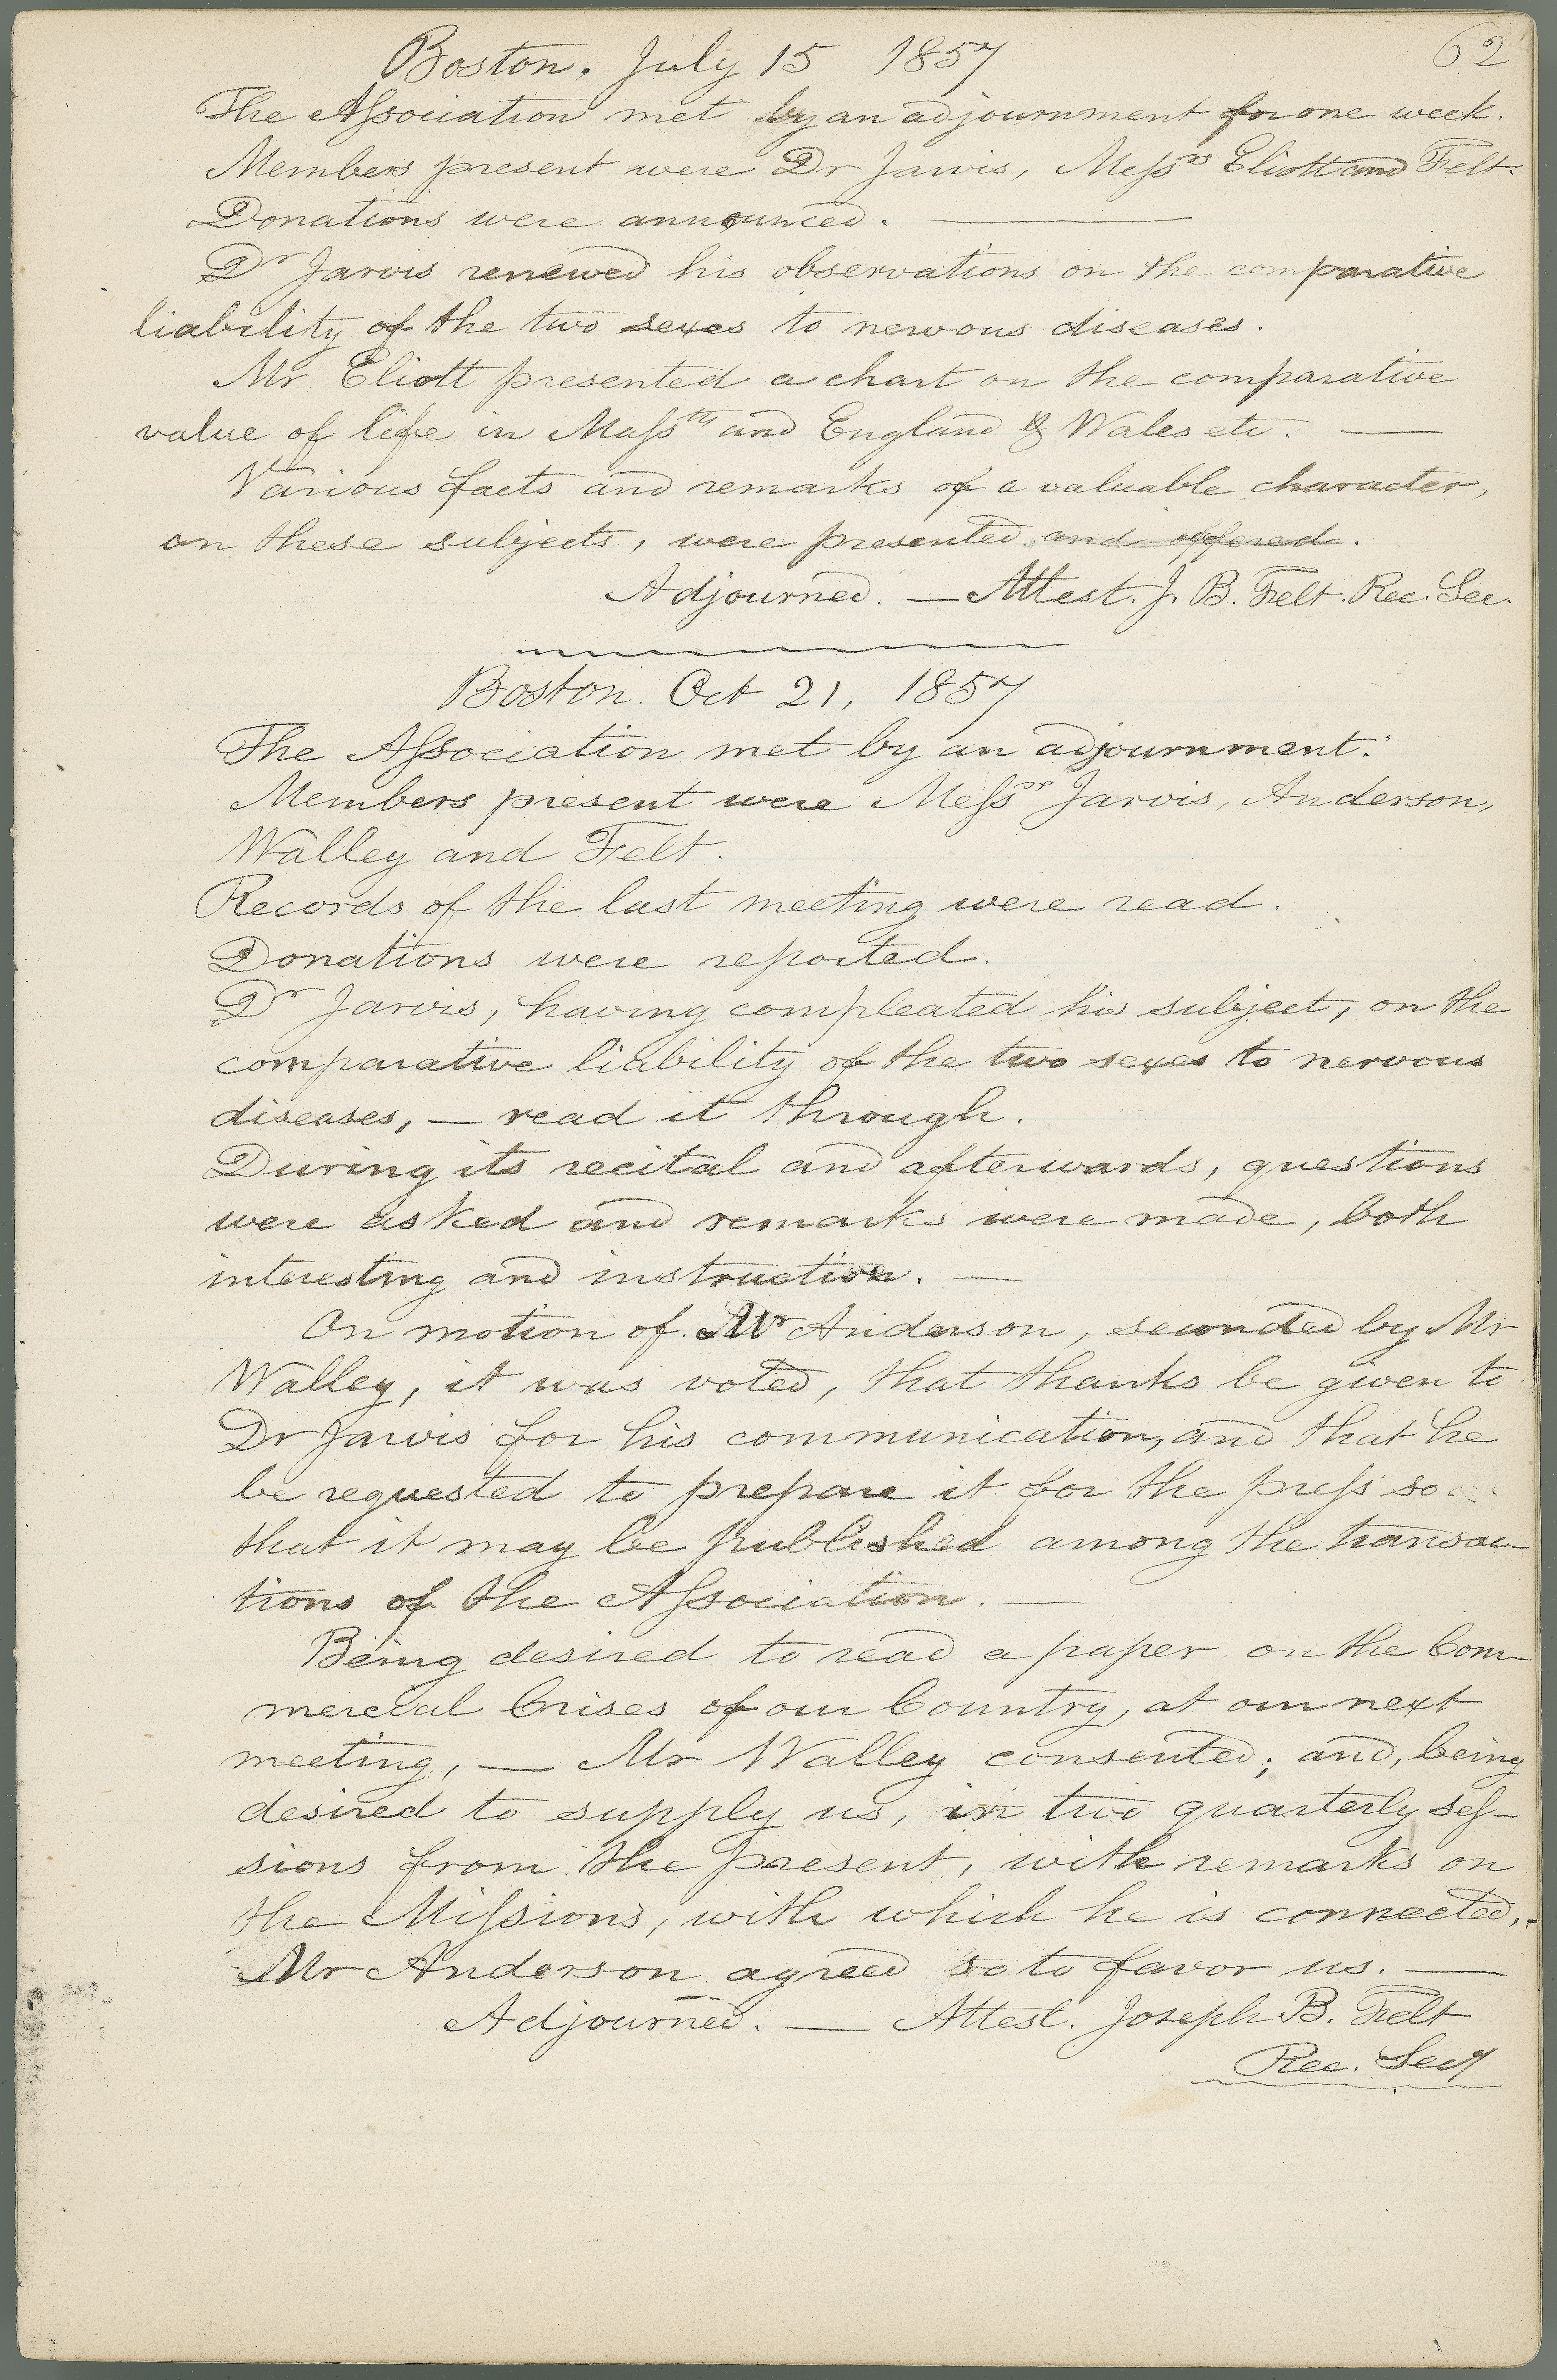 62
Boston. July 15 1857
The Association met by an adjournment for one week.
Members present were Dr Jarvis, Messrs Eliott and Felt.
Donations were announced. —
Dr Jarvis renewed his observations on the comparative
liability of the two sexes to nervous diseases.
Mr Eliott presented a chart on the comparative
value of life in Masstts and England & Wales etc. —
Various facts and remarks of a valuable character,
on these subjects, were presented and offered.
Adjourned. — Attest. J. B. Felt. Rec. Sec.
Boston. Oct 21, 1857
The Association met by an adjournment.
Members present were Messrs Jarvis, Anderson,
Walley and Felt.
Records of the last meeting were read.
Donations were reported.
Dr Jarvis, having compleated his subject, on the
comparative liability of the two sexes to nervous
diseases, — read it through.
During its recital and afterwards, questions
were asked and remarks were made, both
interesting and instructive. —
On motion of Mr Anderson, seconded by Mr
Walley, it was voted, that thanks be given to
Dr Jarvis for his communication, and that he
be requested to prepare it for the press so
that it may be published among the transac-
tions of the Association. —
Being desired to read a paper on the Com-
mercial Crises of our Country, at our next
meeting, — Mr Walley consented; and, being
desired to supply us, in two quarterly ses-
sions from the present, with remarks on
the Missions, with which he is connected,
Mr Anderson agreed so to favor us. —
Adjourned. — Attest. Joseph B. Felt
Rec. Secy